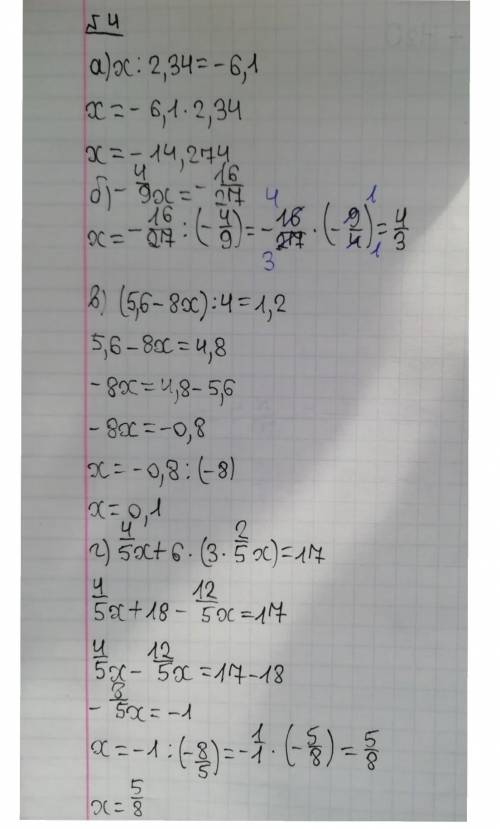 №4
а) x : 2,34 = -6,1
x = -6,1 · 2,34
x = -14,274
б) -4/9x = -16/27
x = -16/27 : (-4/9) = -16/27 · (-9/4) = 4/3
4 1
3 1
в) (5,6 - 8x) : 4 = 1,2
5,6 - 8x = 4,8
-8x = 4,8 - 5,6
-8x = -0,8
x = -0,8 : (-8)
x = 0,1
г) 4/5x + 6 · (3 · 2/5x) = 17
4/5x + 18 - 12/5x = 17
4/5x - 12/5x = 17 - 18
-8/5x = -1
x = -1 : (-8/5) = -1/1 · (-5/8) = 5/8
x = 5/8